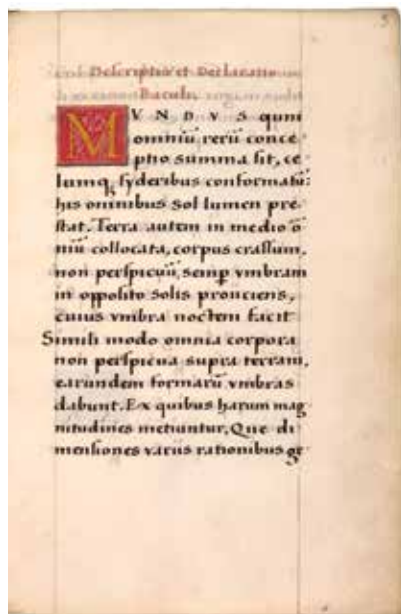 5
Descriptio et Declaratio
Baculi.
MVNDVS qum
omniū rerū conce
ptio summa sit, ce
lumq; syderibus conformatū:
his omnibus Sol lumen pre
stat. Terra autem in medio ō
niū collocata, corpus crassum,
non perspicuū, semp vmbram
in opposito Solis proiiciens,
cuius vmbra noctem facit
Simili modo omnia corpora
non perspicua supra terram,
earundem formarū vmbras
dabunt. Ex quibus harum mag
nitudines metiuntur, Que di
mensiones variis rationibus ge